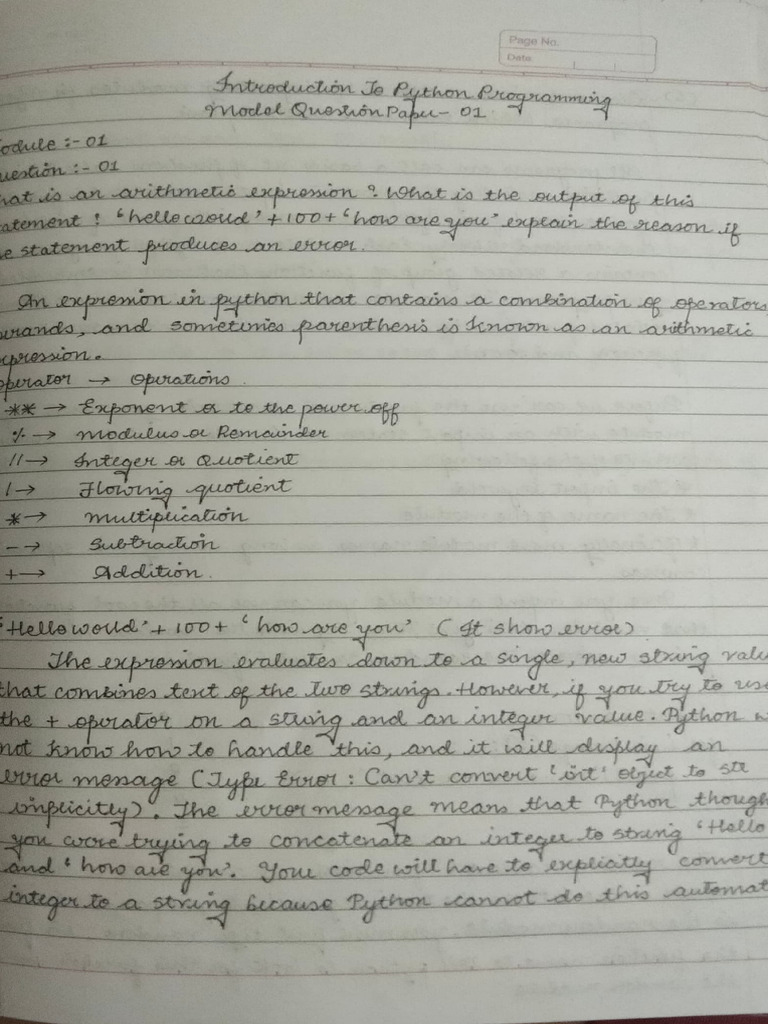 Page No.
Date
Introduction To Python Programming
Model Question Paper - 01
odule :- 01
uestion :- 01
hat is an arithmetic expression ? What is the output of this
atement : 'helloworld' + 100 + 'how are you' explain the reason if
e statement produces an error.
An expression in python that contains a combination of operators,
erands, and sometimes parenthesis is known as an arithmetic
xpression.
operator → Operations.
** → Exponent or to the power off
% → Modulus or Remainder
// → Integer or Quotient
/ → Flowing quotient
* → Multiplication
- → Subtraction
+ → Addition.
'Helloworld' + 100 + 'how are you' (It show error)
The expression evaluates down to a single, new string valu
that combines text of the two strings. However, if you try to use
the + operator on a string and an integer value. Python w
not know how to handle this, and it will display an
error message (Type Error : Can't convert 'int' object to str
implicitly). The error message means that Python though
you were trying to concatenate an integer to string 'Hello
and 'how are you'. Your code will have to explicitly convert
integer to a string because Python cannot do this automat